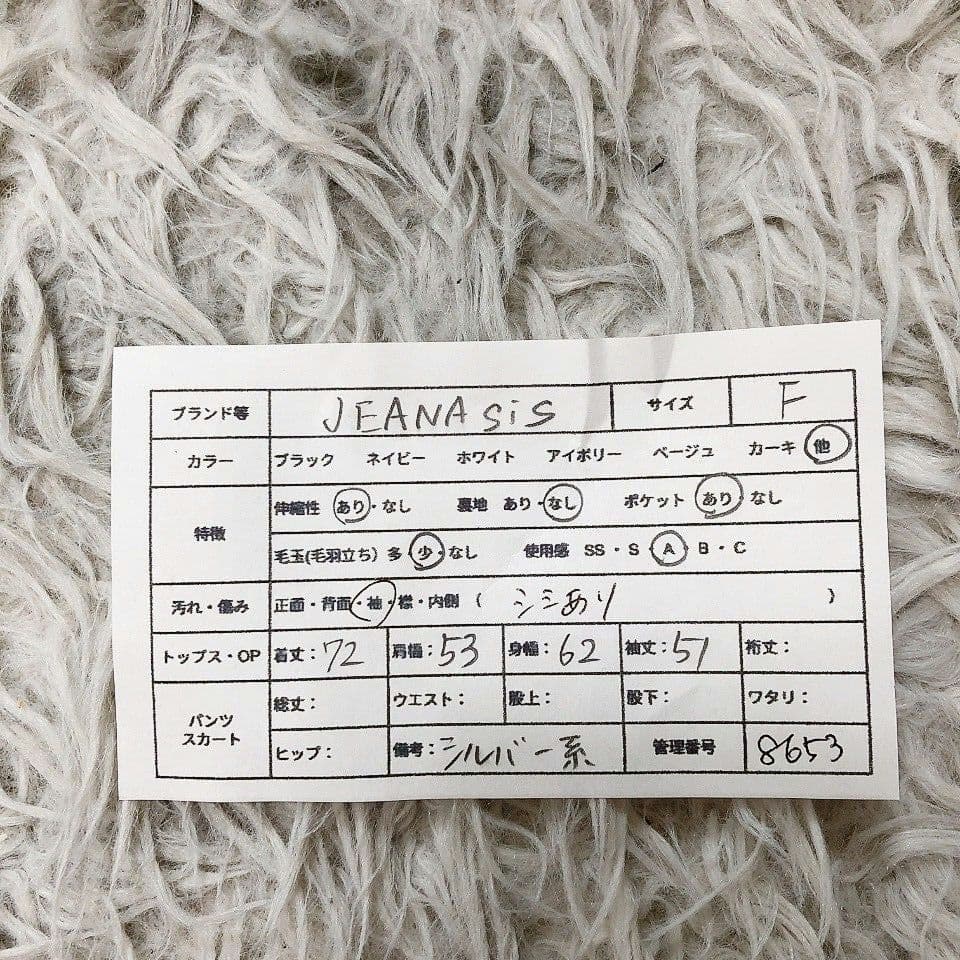 ブランド等 JEANASiS サイズ F
カラー ブラック ネイビー ホワイト アイボリー ベージュ カーキ 他
特徴 伸縮性 あり・なし 裏地 あり・なし ポケット あり・なし
毛玉(毛羽立ち) 多・少・なし 使用感 SS・S・A・B・C
汚れ・傷み 正面・背面・袖・襟・内側 ( シミあり )
トップス・OP 着丈:72 肩幅:53 身幅:62 袖丈:51 裄丈:
パンツ スカート 総丈: ウエスト: 股上: 股下: ワタリ:
ヒップ: 備考:シルバー系 管理番号 8653